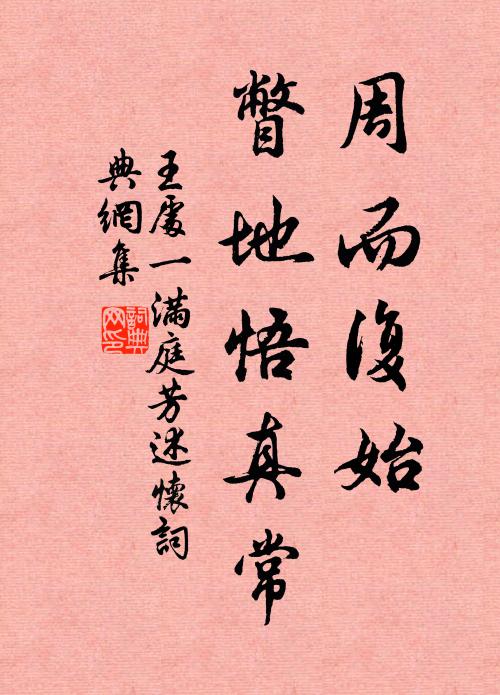 周而復始
瞥地悟真常
王處一滿庭芳述懷詞
典網集
詞典
网印